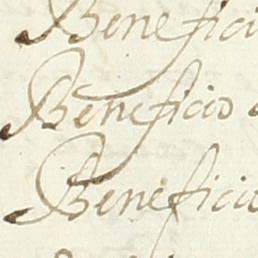 Beneficio
Beneficio
Beneficio